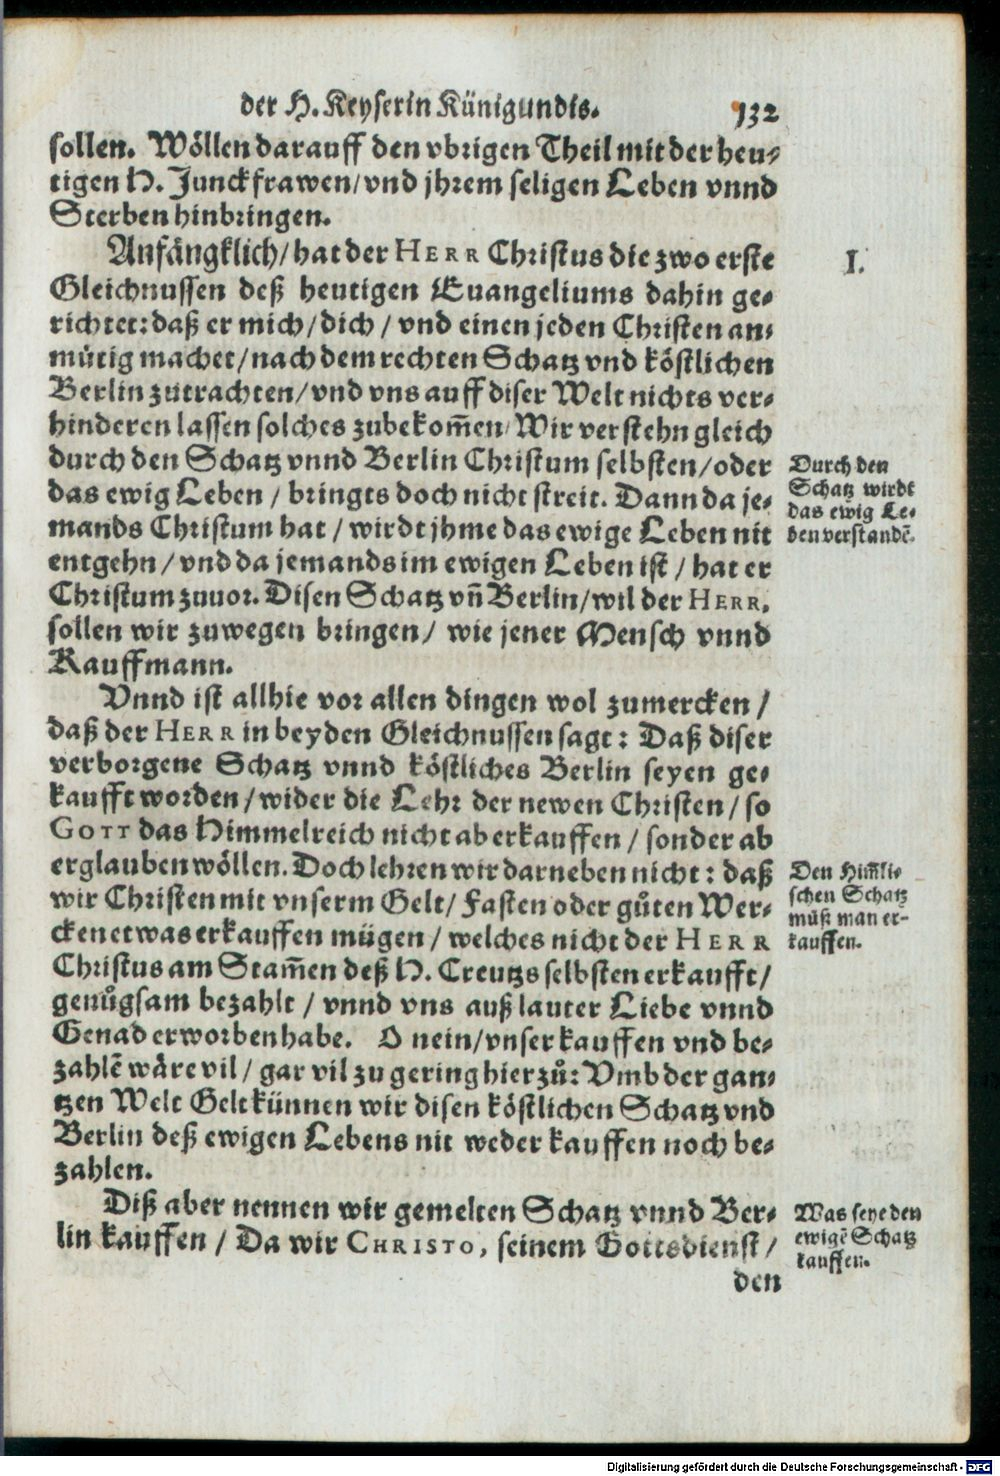 der H. Keyserin Künigundis. 132
sollen. Wöllen darauff den vbrigen Theil mit der heu-
tigen H. Junckfrawen/vnd jhrem seligen Leben vnnd
Sterben hinbringen.
Anfängklich/hat der HERR Christus die zwo erste
I.
Gleichnussen deß heutigen Euangeliums dahin ge-
richtet: daß er mich/dich/vnd einen jeden Christen an-
mütig machet/nach dem rechten Schatz vnd köstlichen
Berlin zutrachten/vnd vns auff diser Welt nichts ver-
hinderen lassen solches zubekom̃en/Wir verstehn gleich
durch den Schatz vnnd Berlin Christum selbsten/oder
das ewig Leben/bringts doch nicht streit. Dann da je-
mands Christum hat/wirdt jhme das ewige Leben nit
entgehn/vnd da jemands im ewigen Leben ist/hat er
Christum zuuor. Disen Schatz vñ Berlin/wil der HERR,
sollen wir zuwegen bringen/wie jener Mensch vnnd
Kauffmann.
Durch den
Schatz wirdt
das ewig Le-
ben verstandẽ.
Vnnd ist allhie vor allen dingen wol zumercken/
daß der HERR in beyden Gleichnussen sagt: Daß diser
verborgene Schatz vnnd köstliches Berlin seyen ge-
kaufft worden/wider die Lehr der newen Christen/so
GOTT das Himmelreich nicht ab erkauffen/sonder ab
erglauben wöllen. Doch lehren wir darneben nicht: daß
wir Christen mit vnserm Gelt/Fasten oder gůten Wer-
cken etwas erkauffen mügen/welches nicht der HERR
Christus am Stam̃en deß H. Creutzs selbsten erkaufft/
genůgsam bezahlt/vnnd vns auß lauter Liebe vnnd
Genad erworben habe. O nein/vnser kauffen vnd be-
zahlẽ wäre vil/gar vil zu gering hierzů: Vmb der gan-
tzen Welt Gelt künnen wir disen köstlichen Schatz vnd
Berlin deß ewigen Lebens nit weder kauffen noch be-
zahlen.
Den Him̃li-
schen Schatz
můß man er-
kauffen.
Diß aber nennen wir gemelten Schatz vnnd Ber-
lin kauffen/Da wir CHRISTO, seinem Gottsdienst/
den
Was seye den
ewigẽ Schatz
kauffen.
Digitalisierung gefördert durch die Deutsche Forschungsgemeinschaft - DFG